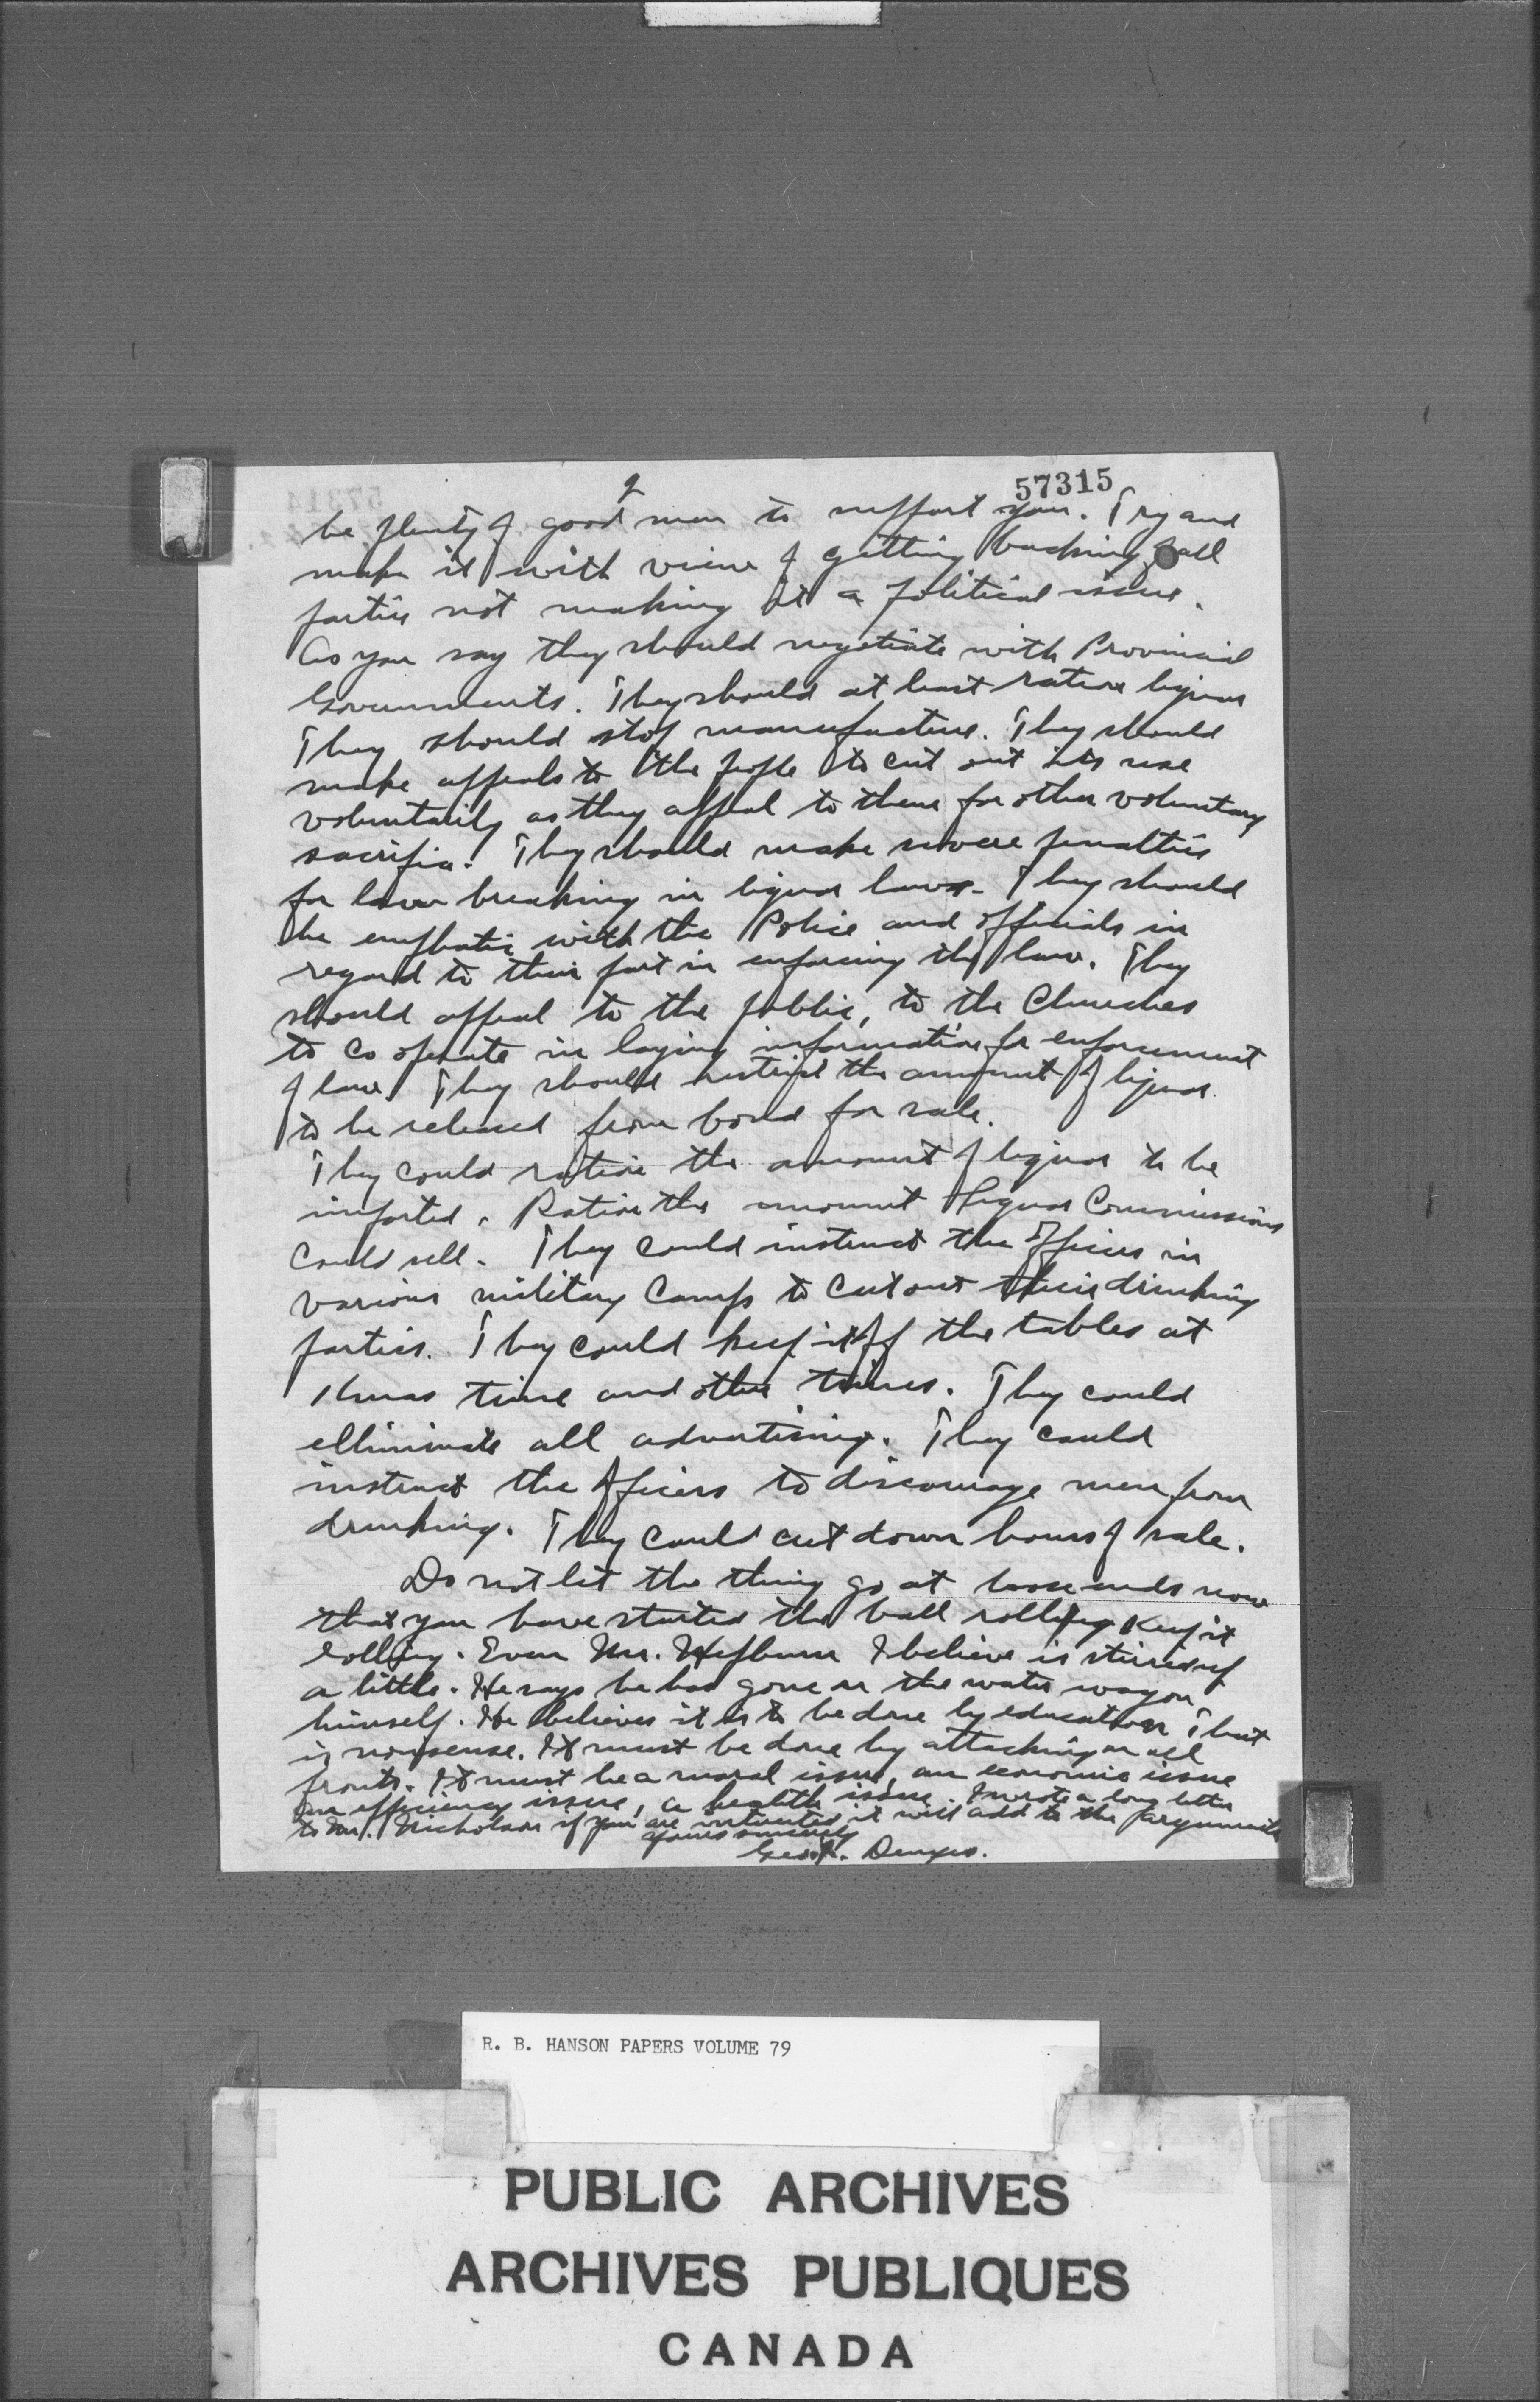 2
57315
be plenty of good men to support you. Try and
make it with view of getting backing of all
parties not making it a political issue.
As you say they should negotiate with Provincial
Governments. They should at least ration liquor
They should stop manufacture. They should
make appeals to the people to cut out its use
voluntarily as they appeal to them for other voluntary
sacrifice. They should make severe penalties
for law breaking in liquor laws. They should
be emphatic with the Police and officials in
regard to their part in enforcing the law. They
should appeal to the public, to the Churches
to co operate in laying information for enforcement
of law. They should restrict the amount of liquor
to be released from bond for sale.
They could ration the amount of liquor to be
imported. Ration the amount Liquor Commissions
could sell. They could instruct the officers in
various military camps to cut out their drinking
parties. They could keep it off the tables at
Xmas time and other times. They could
elliminate all advertising. They could
instruct the officers to discourage men from
drinking. They could cut down hours of sale.
Do not let the thing go at loose ends now
that you have started the ball rolling keep it
rolling. Even Mr. Hepburn I believe is stirred up
a little. He says he has gone on the water wagon
himself. He believes it is to be done by education that
is nonsense. It must be done by attacking on all
fronts. It must be a moral issue, an economic issue
an efficiency issue, a health issue. I wrote a long letter
to Mr. Nicholson if you are interested it will add to the arguments
yours sincerely
Geo.
R. B. HANSON PAPERS VOLUME 79
PUBLIC ARCHIVES
ARCHIVES PUBLIQUES
CANADA